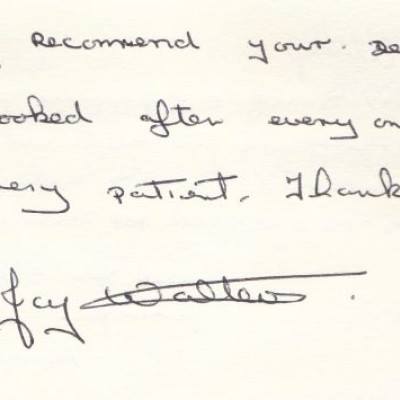 Recommend your De
ooked after every on
ery patient. Thank
Jay Walters.